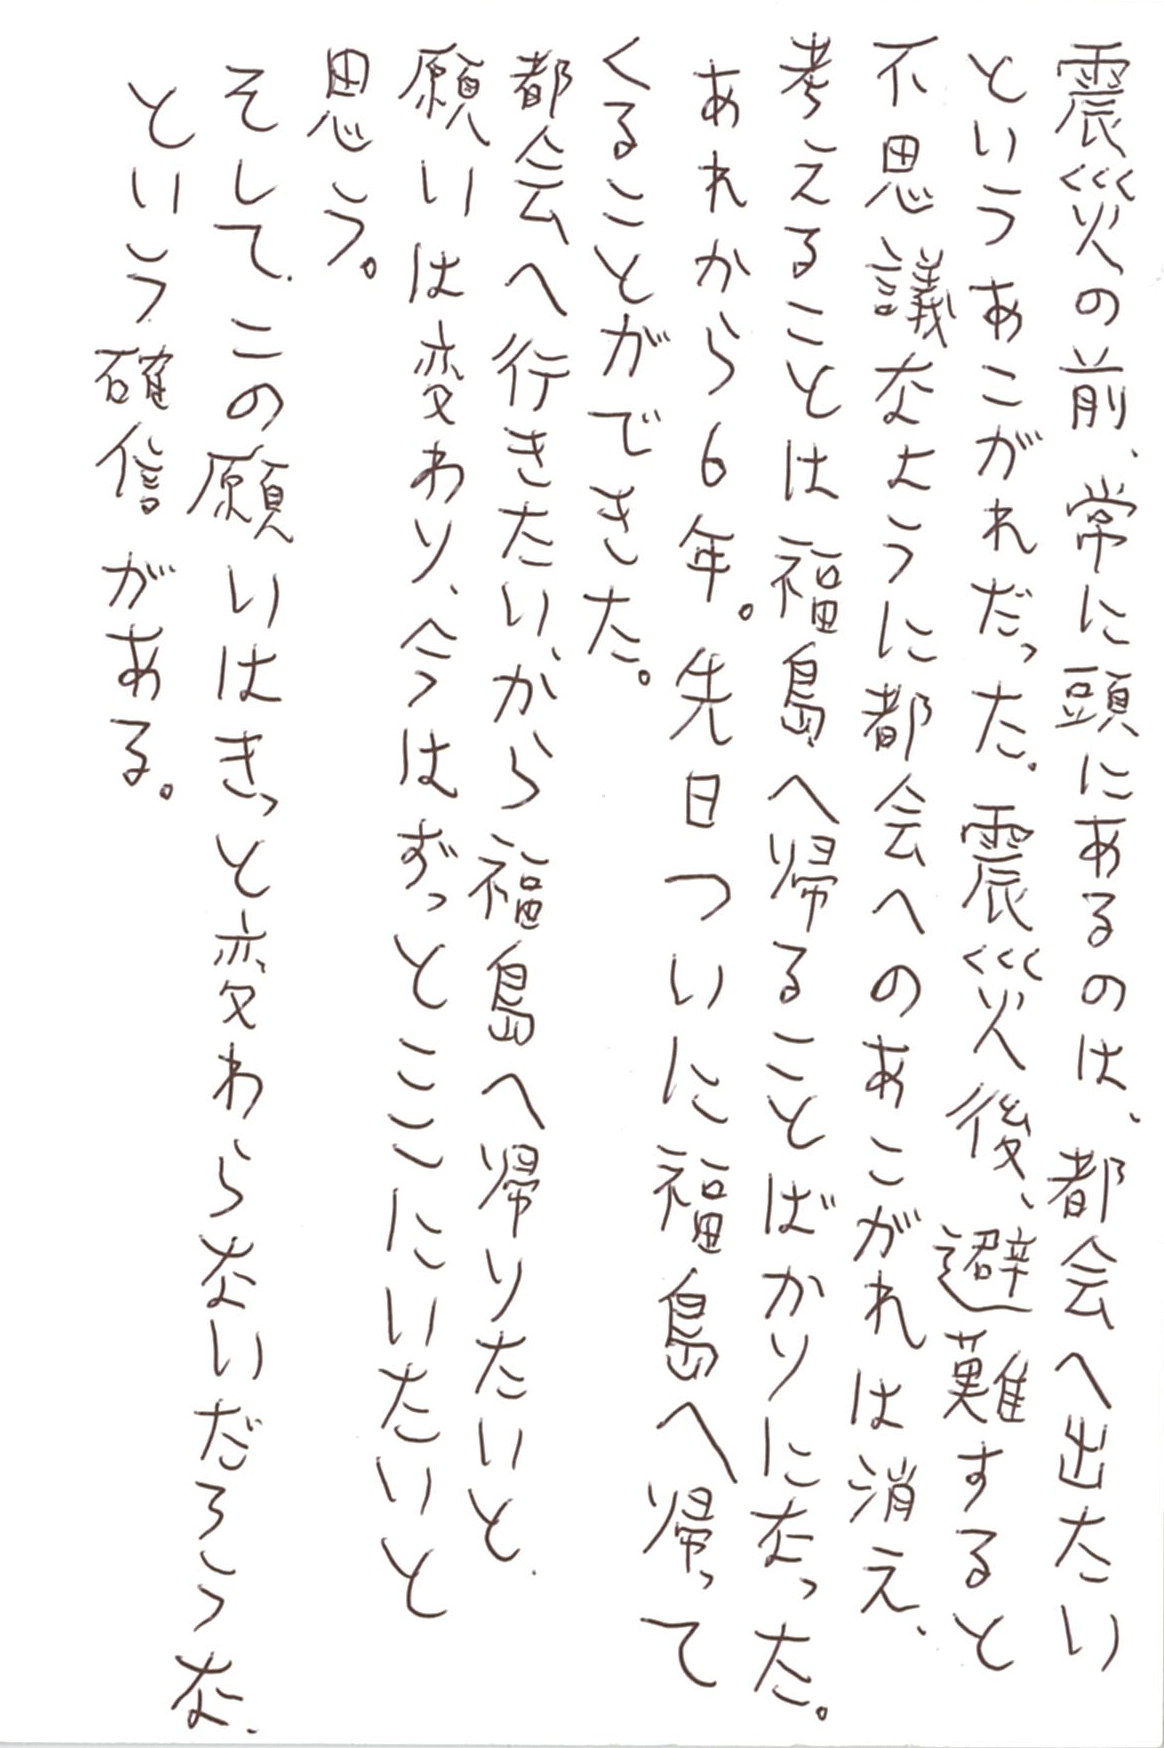 震災の前、常に頭にあるのは、都会へ出たい
というあこがれだった。震災後、避難すると
不思議なように都会へのあこがれは消え、
考えることは福島へ帰ることばかりになった。
あれから6年。先日ついに福島へ帰って
くることができた。
都会へ行きたい、から福島へ帰りたいと、
願いは変わり、今はずっとここにいたいと
思う。
そして、この願いはきっと変わらないだろうな、
という確信がある。